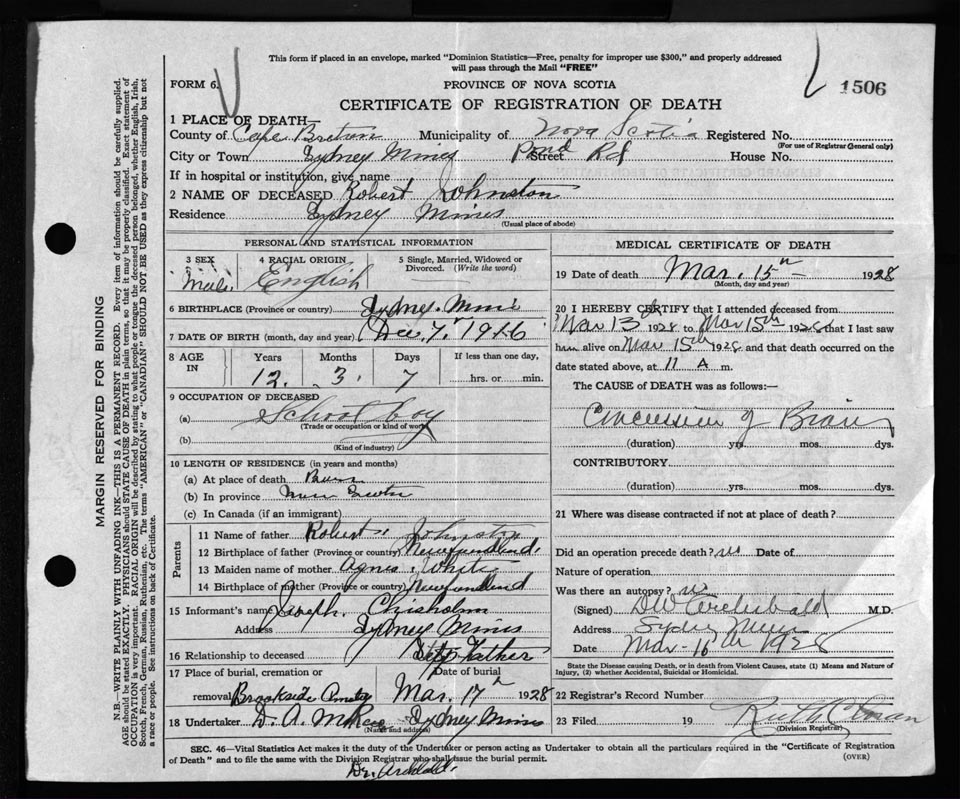 This form if placed in an envelope, marked "Dominion Statistics—Free, penalty for improper use $300," and properly addressed
will pass through the Mail "FREE"
FORM 6. PROVINCE OF NOVA SCOTIA 1506
CERTIFICATE OF REGISTRATION OF DEATH
1 PLACE OF DEATH
County of Cape Breton Municipality of Nova Scotia Registered No.
(For use of Registrar General only)
City or Town Sydney Mines Pond Street Rd House No.
If in hospital or institution, give name
2 NAME OF DECEASED Robert Johnston
Residence Sydney Mines
(Usual place of abode)
PERSONAL AND STATISTICAL INFORMATION
3 SEX 4 RACIAL ORIGIN 5 Single, Married, Widowed or Divorced. (Write the word)
Male English
6 BIRTHPLACE (Province or country) Sydney Mines
7 DATE OF BIRTH (month, day and year) Dec. 7, 1916
8 AGE IN Years Months Days If less than one day,
12 3 7 hrs. or min.
9 OCCUPATION OF DECEASED
(a) School boy
(Trade or occupation or kind of work)
(b)
(Kind of industry)
10 LENGTH OF RESIDENCE (in years and months)
(a) At place of death
(b) In province Nova Scotia
(c) In Canada (if an immigrant)
Parents
11 Name of father Robert Johnston
12 Birthplace of father (Province or country) Newfoundland
13 Maiden name of mother Agnes White
14 Birthplace of mother (Province or country) Newfoundland
15 Informant's name Joseph Chisholm
Address Sydney Mines
16 Relationship to deceased Step Father
17 Place of burial, cremation or Date of burial
removal Brookside Mar. 17th 1928
18 Undertaker D. A. McRae Sydney Mines
(Name and address)
MEDICAL CERTIFICATE OF DEATH
19 Date of death Mar. 15th 1928
(Month, day and year)
20 I HEREBY CERTIFY that I attended deceased from
Mar 13th 1928 to Mar 15th 1928 that I last saw
him alive on Mar 15th 1928 and that death occurred on the
date stated above, at 11 A m.
The CAUSE of DEATH was as follows:—
Concussion of Brain
(duration) yrs. mos. dys.
CONTRIBUTORY
(duration) yrs. mos. dys.
21 Where was disease contracted if not at place of death?
Did an operation precede death? no Date of
Nature of operation
Was there an autopsy? no
(Signed) DW Archibald M.D.
Address Sydney Mines
Date Mar - 16th 1928
State the Disease causing Death, or in death from Violent Causes, state (1) Means and Nature of Injury, (2) whether Accidental, Suicidal or Homicidal.
22 Registrar's Record Number
23 Filed 19 Ruth
(Division Registrar)
SEC. 46—Vital Statistics Act makes it the duty of the Undertaker or person acting as Undertaker to obtain all the particulars required in the "Certificate of Registration
of Death" and to file the same with the Division Registrar who shall issue the burial permit. (OVER)
Dr. Archibald.
MARGIN RESERVED FOR BINDING
N.B.—WRITE PLAINLY WITH UNFADING INK—THIS IS A PERMANENT RECORD. Every item of information should be carefully supplied.
AGE should be stated EXACTLY. PHYSICIANS should STATE CAUSE OF DEATH in plain terms, so that it may be properly classified. Exact statement of
OCCUPATION is very important. RACIAL ORIGIN will be described by stating to what people or tongue the deceased person belonged, whether English, Irish,
Scotch, French, German, Russian, Ruthenian, etc. The terms "AMERICAN" or "CANADIAN" SHOULD NOT BE USED as they express citizenship but not
a race or people. See instructions on back of Certificate.